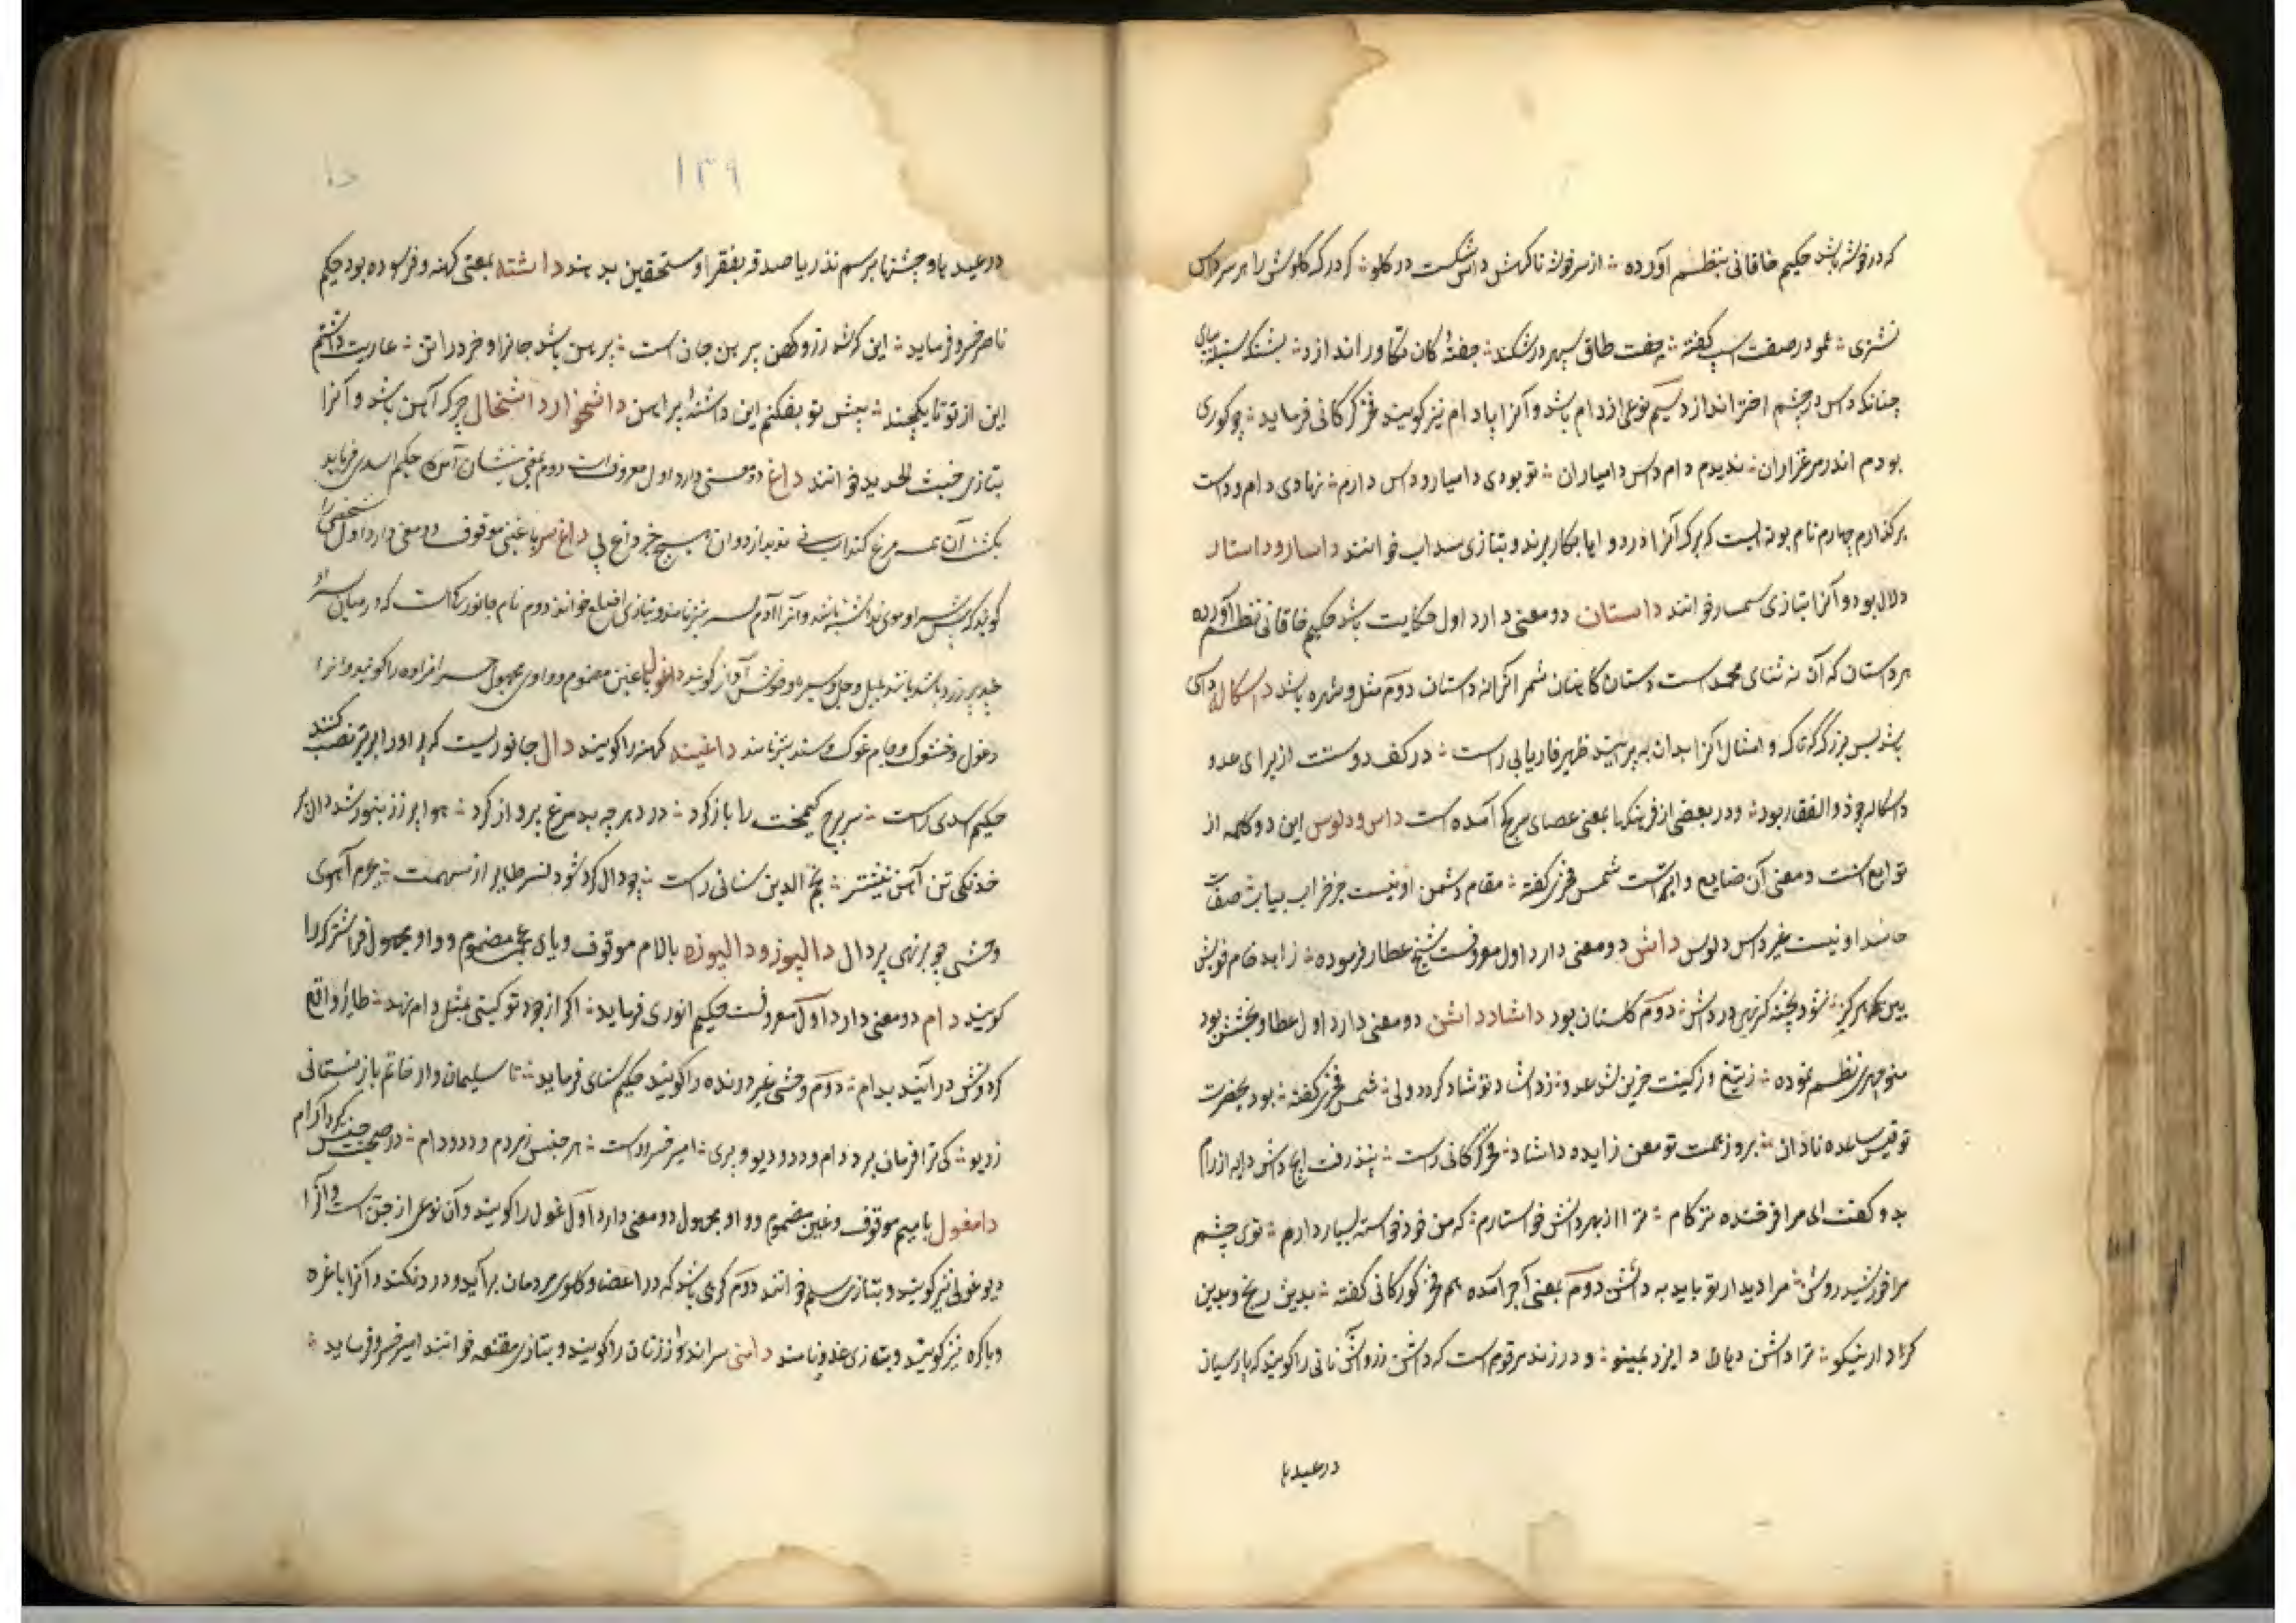 که در خوشه باشد حکیم خاقانی بنظم آورده از سر خوشه ناگهش داس شکست در گلو که در گلوش را هر سر داس
نشتری عمود در صفت اسپ گفته جفت طاق سپهر در شکند جفته کان تکاور اندازد بشکند
چنانکه داس در چشم اختر اندازد سیم نوعی از دام باشد و آنرا پادام نیز گویند فخر گرگانی فرماید چو گوری
بودم اندر مرغزاران ندیدم دام داس دامیاران تو بودی دامیار و داس دارم نهادی دام و داست
بر گذارم چهارم نام بوته ایست که برگ آنرا در دواها بکار برند و بتازی سداب خوانند داسار و داستار
دلال بود و آنرا بتازی سمسار خوانند داستان دو معنی دارد اول حکایت باشد حکیم خاقانی نظم آورده
هر داستان که آن نه ثنای محمد است دستان کاهنان شمر آنرا نه داستان دوم مثل و شهره باشد داسکاله داسی
باشد بس بزرگ که تاک و امثال آنرا بدان به پیرایند ظهیر فاریابی راست در کف دوستت از برای عدو
داسکاله چو ذوالفقار بود و در بعضی از فرهنگها بمعنی عصای سرکج آمده است داس و دلوس این دو کلمه از
توابع است و معنی آن ضایع و ابتر است شمس فخری گفته مقام دشمن او نیست جز خراب بیاب صفت
حاسد او نیست غیر داس دلوس داش دو معنی دارد اول معروفست شیخ عطار فرموده زاهد خام خویش
بین هرگز نشود پخته گر نهی در داش دوم گلستان بود داشاد داشن دو معنی دارد اول عطا و بخشش بود
منوچهری نظم نموده ز تیغ و ز کینت حزین شد عدو ز داشاد تو شاد گردد ولی شمس فخری گفته بود بحضرت
تو قیس ساعده نادان بروز همت تو معن زایده داشاد فخر گرگانی راست بپذرفت ایچ داشن دایه از رام
بدو گفت ای مرا فرخنده تر کام ترا از بهر دانش خواستارم که من خود خواسته بسیار دارم توی چشم
مرا خورشید روشن مرا دیدار تو باید نه داشن دوم بمعنی اجر آمده هم فخر گورگانی گفته بدین رنج و بدین
کردار نیکو ترا داشن دهاد ایزد بمینو و در زند مرقوم است که داشن درواش نانی را گویند که پارسیان
در عیدها
۱۳۹
دا
در عیدها و جشنها برسم نذر یا صدقه بفقرا و مستحقین بدهند داشته بمعنی کهنه و فرسوده بود حکیم
ناصر خسرو فرماید این کرشه رز و کهن پیرهن جان است پیرهن باشد جانرا و خرد را تن عاریت داشتم
این از تو تا یکچند پیش تو بفکنم این داشته پیراهن داشخوار داشخال چرک آهن باشد و آنرا
بتازی خبث الحدید خوانند داغ دو معنی دارد اول معروف است دوم بمعنی نشان آمده حکیم اسدی فرماید
بکشت آن همه مرغ کنداب نی ندید از دوان هیچ جز داغ پی داغ سر با غین موقوف دو معنی دارد اول شخصی را
گویند که پیش سر او موی نداشته باشد و آنرا آدم سر نیز نامند و بتازی اصلع خوانند دوم نام جانوریست که در میان سر او
چند پر زرد باشد مانند بلبل و جل و سیره و خوش آواز گویند داغول با غین مضموم و واو مجهول حرامزاده را گویند و آنرا
دغول و خشوک و جام غوک و سند نیز نامند داغینه کهنه را گویند دال جانوریست که پر او را بر تیر نصب کنند
حکیم اسدی راست سر برج کیمخت را باز کرد درد هر چه بد مرغ پرواز کرد هوا پر ز زنبور شد دال پر
خدنگی تن آهن نیشتر نجم الدین سنائی راست چو دال گردد شود نسر طایر از سهمت چرم آهوی
وحشی چو بر نهی پر دال دالبوز و دالبوزه بالام موقوف و بای عجمی مضموم و واو مجهول فراشتوک را
گویند دام دو معنی دارد اول معروفست حکیم انوری فرماید اگر از جود تو گیتی بمثل دام نهد طایر واقع
گردونش در آیند بدام دوم وحشی غیر درنده را گویند حکیم سنائی فرماید تا سلیمان وار خاتم باز نستانی
ز دیو کی ترا فرمان برد دام و دد و دیو و پری امیر خسرو راست هر جنس ز مردم و دد و دام در صحبت جنس گیرد آرام
دامغول با میم موقوف و غین مضموم و واو مجهول دو معنی دارد اول غول را گویند و آن نوعی از جن است و آنرا
دیو غولی نیز گویند و بتازی خوانند دوم گرهی باشد که در اعضا و گلوی مردمان برآید و درد نکند و آنرا باغره
و باکره نیز گویند و بتازی غدو نامند دامنی سرانداز زنان را گویند و بتازی مقنعه خوانند امیر خسرو فرماید